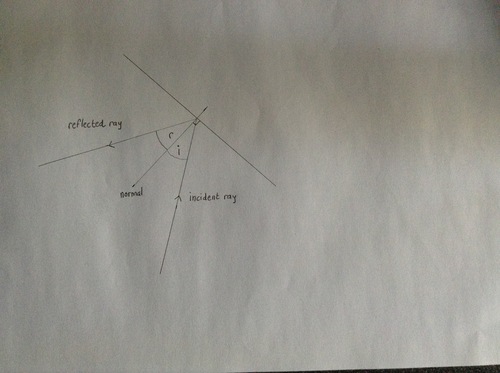 reflected ray
r
i
normal
incident ray